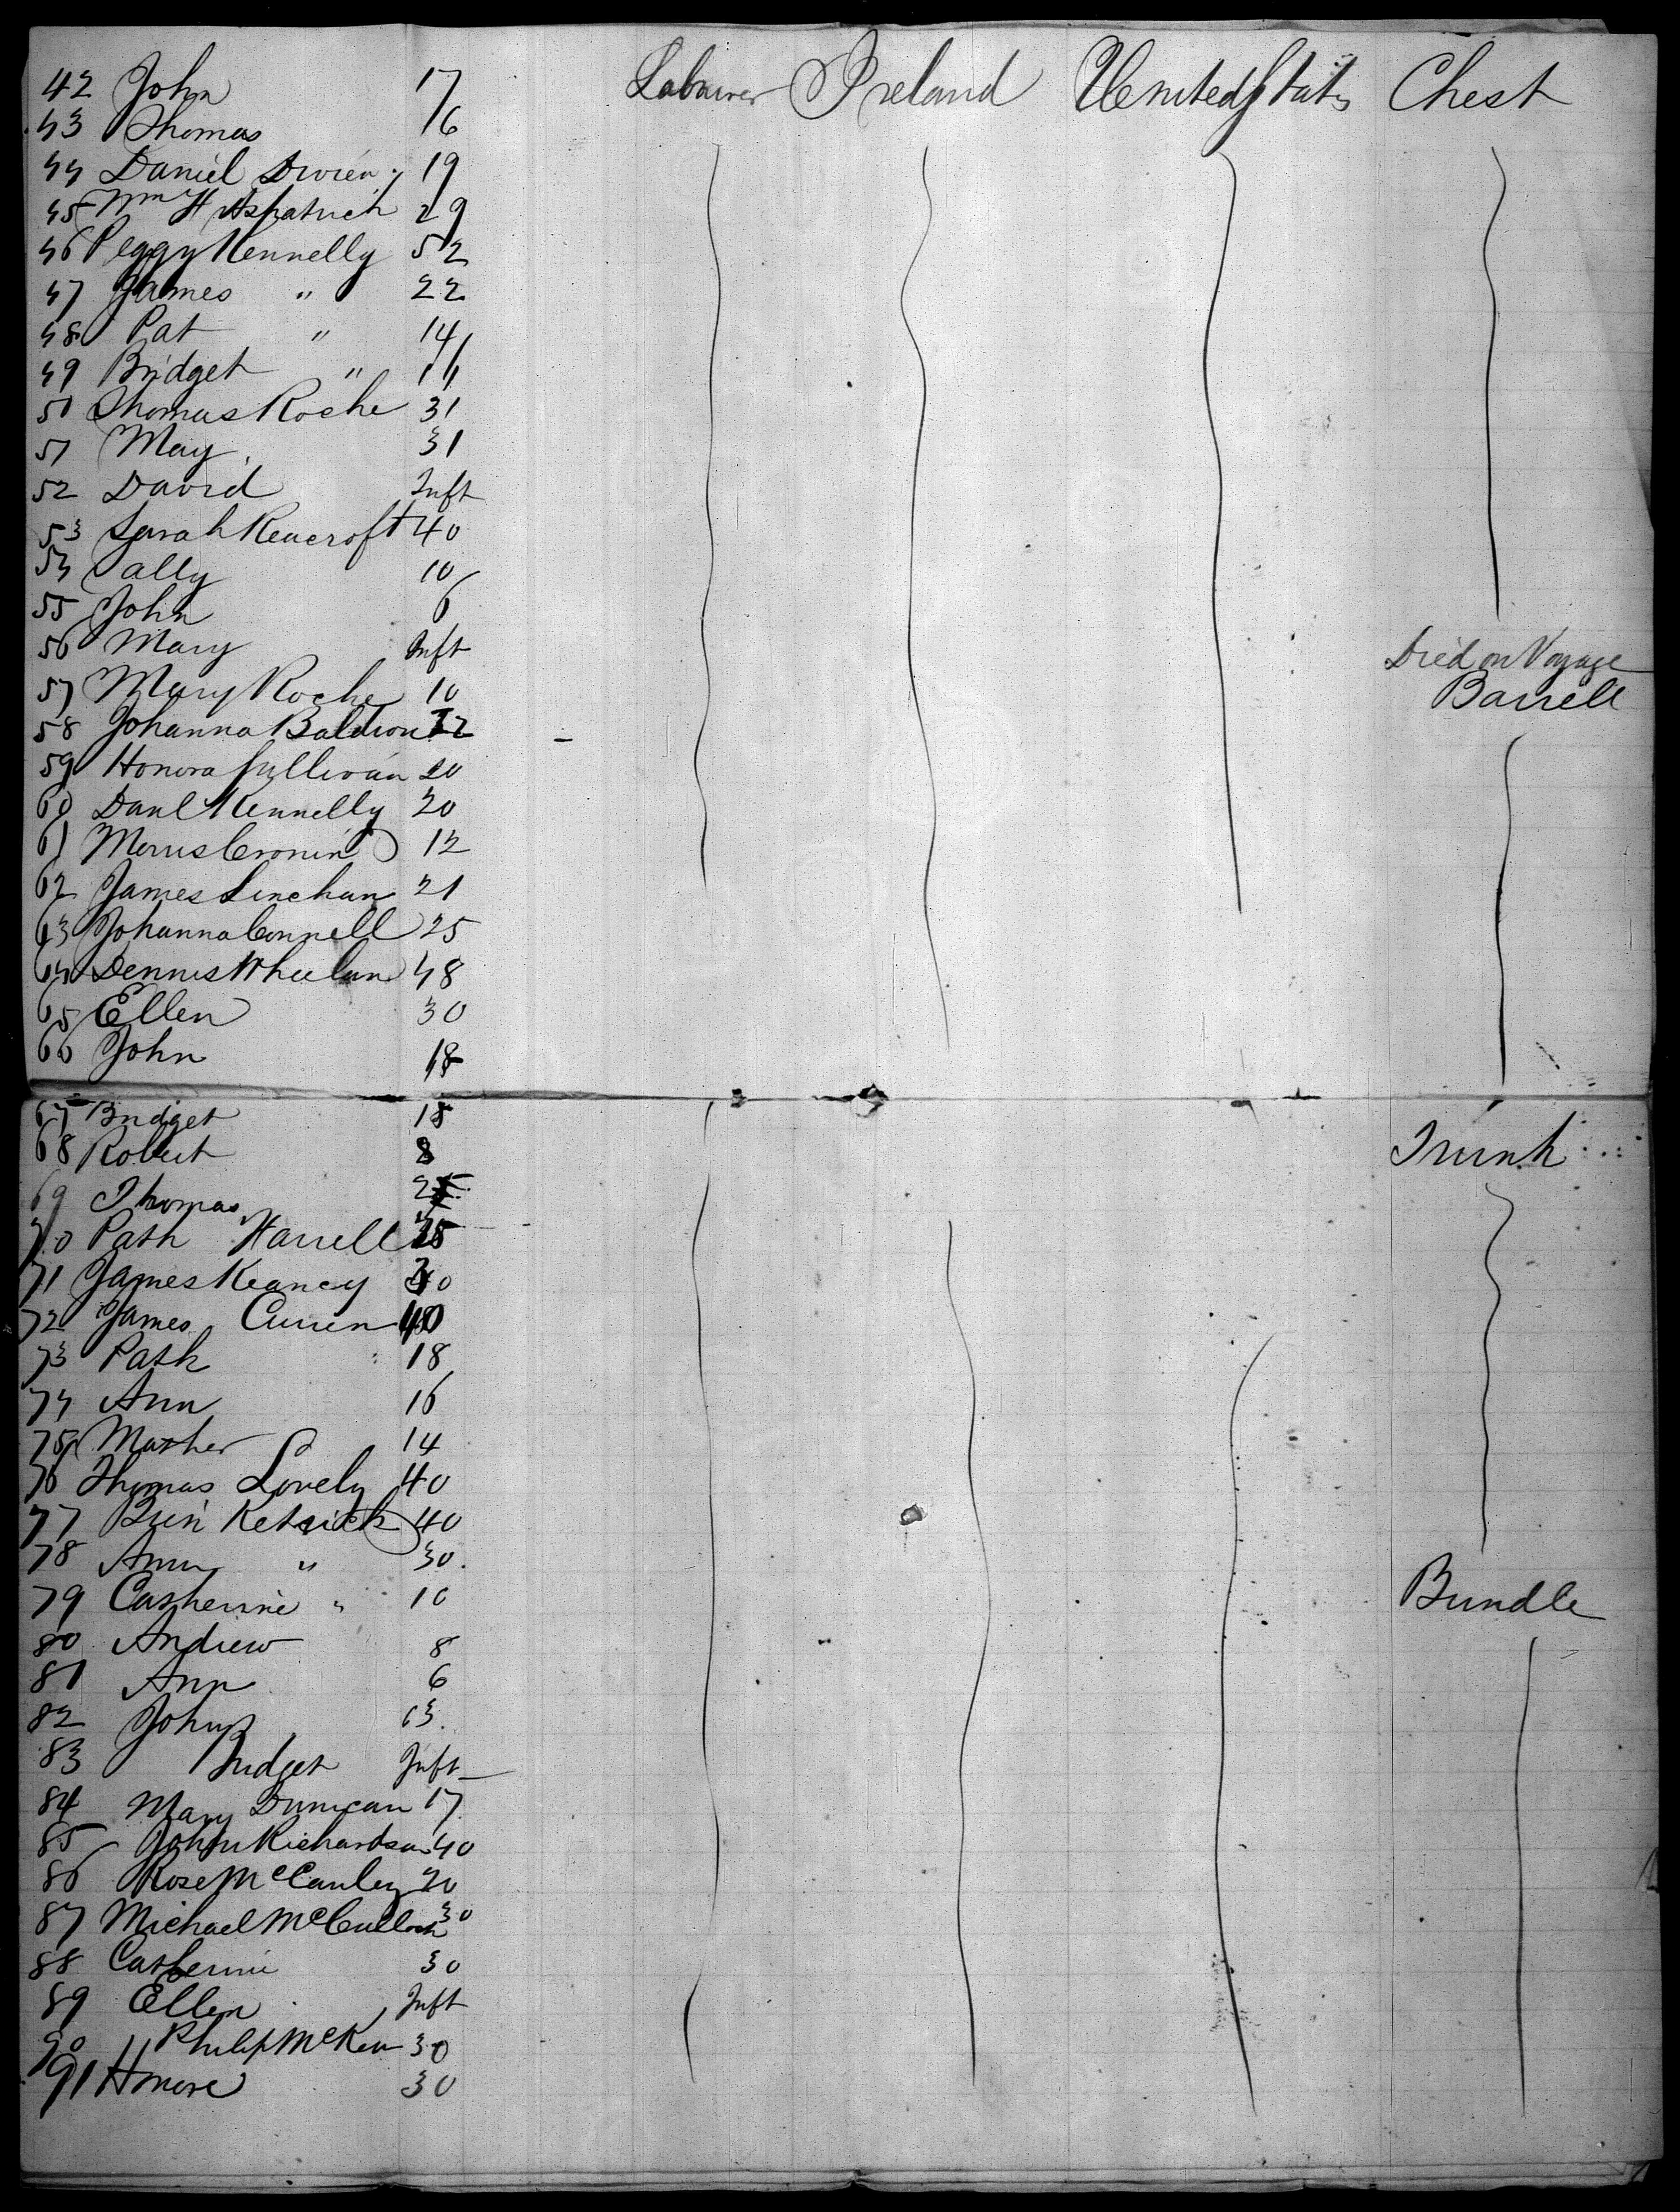 42 John 17 Labourer Ireland United States Chest
43 Thomas 16
44 Daniel 19
45 Wm Fitzpatrick 29
46 Peggy Kennelly 52
47 James " 22
48 Pat " 14
49 Bridget " 11
50 Thomas Roche 31
51 May 31
52 David Inft
53 Sarah Reacroft 40
54 Sally 10
55 John 6
56 Mary Inft Died on Voyage
57 Mary Roche 10 Barrell
58 Johanna Baldwin 22
59 Honora Sullivan 20
60 Danl Kennelly 20
61 Morris Cronin 12
62 James Linehan 21
63 Johanna Connell 25
64 Dennis Wheelan 48
65 Ellen 30
66 John 18
67 Bridget 18
68 Robert 8 Trunk
69 Thomas
70 Patk Harrell
71 James Keaney
72 James Curren 40
73 Patk 18
74 Ann 16
75 14
76 Thomas Lovely 40
77 40
78 Ann " 30
79 Catherine " 10 Bundle
80 Andrew 8
81 Ann 6
82 John 13
83 Bridget Inft
84 Mary Duncan 17
85 John Richardson 40
86 Rose McCauley 20
87 Michael McCulloch 30
88 Catherine 30
89 Ellen Inft
90 Philip McKen 30
91 30